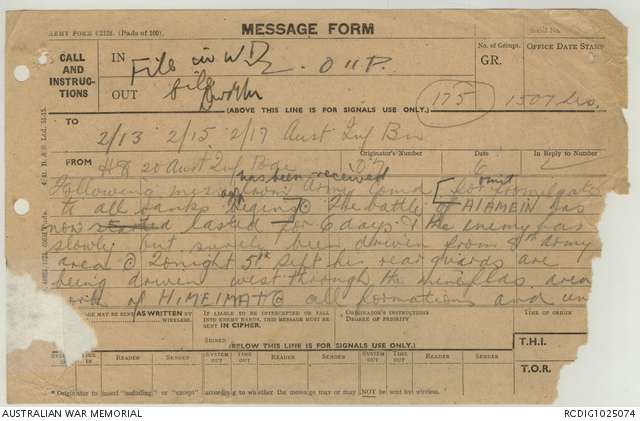 ARMY FORM C2128. (Pads of 100).
MESSAGE FORM
CALL AND INSTRUCTIONS
IN
File in W.D.
OUT
No. of Groups.
GR.
OFFICE DATE STAMP
175
1507 hrs.
(ABOVE THIS LINE IS FOR SIGNALS USE ONLY.)
TO
2/13 2/15 2/17 Aust Inf Bn
FROM
HQ 20 Aust Inf Bde
Originator's Number
Date
In Reply to Number
has been received omit
Following message from Army Comd for
to all ranks begins @ The battle of ALAMEIN has
now lasted for 6 days @ the enemy has
slowly but surely been driven from 8th army
area @ Tonight 5th Sept his rear guards are
being driven west through the minefields area
of HIMEIMAT @ all formations and un
MAY BE SENT AS WRITTEN BY WIRELESS.
IF LIABLE TO BE INTERCEPTED OR FALL INTO ENEMY HANDS, THIS MESSAGE MUST BE SENT IN CIPHER.
ORIGINATOR'S INSTRUCTIONS
DEGREE OF PRIORITY
TIME OF ORIGIN
SIGNED
(BELOW THIS LINE IS FOR SIGNALS USE ONLY.)
T.H.I.
SYSTEM OUT TIME OUT READER SENDER SYSTEM OUT TIME OUT READER SENDER
T.O.R.
* Originator to insert "including," or "except" according to whether the message may or may NOT be sent by wireless.
AUSTRALIAN WAR MEMORIAL
RCDIG1025074